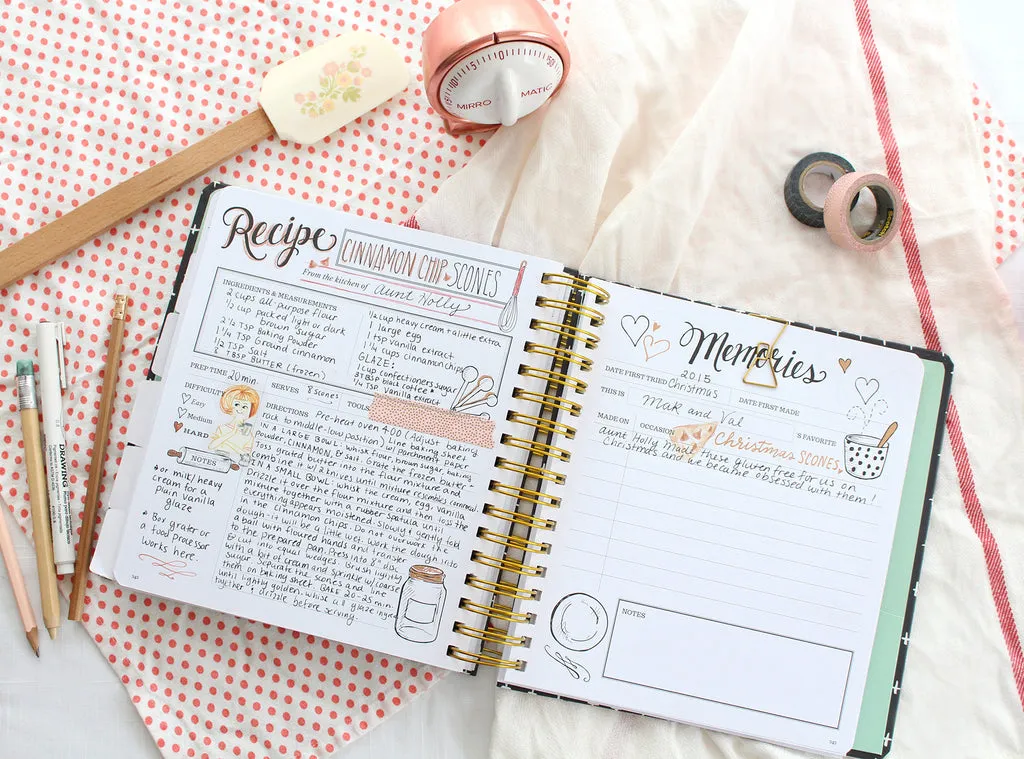 MIRRO MATIC
Recipe
CINNAMON CHIP SCONES
From the kitchen of Aunt Holly
INGREDIENTS & MEASUREMENTS
2 cups all-purpose flour
1/2 cup packed light or dark
brown sugar
2 1/2 TSP Baking Powder
1 1/4 TSP Ground cinnamon
1/2 TSP Salt
8 TBSP BUTTER (frozen)
1/2 cup heavy cream + a little extra
1 large egg
1 tsp vanilla extract
1 1/4 cups cinnamon chips
GLAZE:
1 cup confectioners sugar
3 TBSP black coffee
1/4 TSP vanilla extract
PREP TIME 20 min.
SERVES 8 scones
TOOLS
DIFFICULTY
Easy
Medium
HARD
NOTES
or milk/heavy
cream for a
plain vanilla
glaze
Box grater or
a food processor
works here
DIRECTIONS Pre-heat oven 400 (Adjust baking
rack to middle-low position) Line baking sheet
w/ parchment paper
IN A LARGE BOWL: whisk flour, brown sugar, baking
powder, CINNAMON, & salt. Grate the frozen butter -
Toss grated butter into the flour mixture and
combine it w/ 2 knives until mixture resembles cornmeal
IN A SMALL BOWL: whisk the cream, egg, vanilla
Drizzle it over the flour mixture and then toss the
mixture together with a rubber spatula until
everything appears moistened. Slowly & gently fold
in the cinnamon chips. Do not overwork the
dough - it will be a little wet. Work the dough into
a ball with floured hands and transfer
to the prepared pan. Press into 8" disc
& cut into equal wedges. Brush lightly
with a bit of cream and sprinkle w/ coarse
sugar. Separate the scones and line
them on baking sheet. BAKE 20-25 min.
until lightly golden. whisk all glaze
together & drizzle before serving.
142
Memories
DATE FIRST TRIED Christmas 2015
DATE FIRST MADE
THIS IS Mak and Val 'S FAVORITE
Christmas SCONES.
MADE ON
OCCASION
aunt Holly made these gluten free for us on
Christmas and we became obsessed with them!
NOTES
143
DRAWING